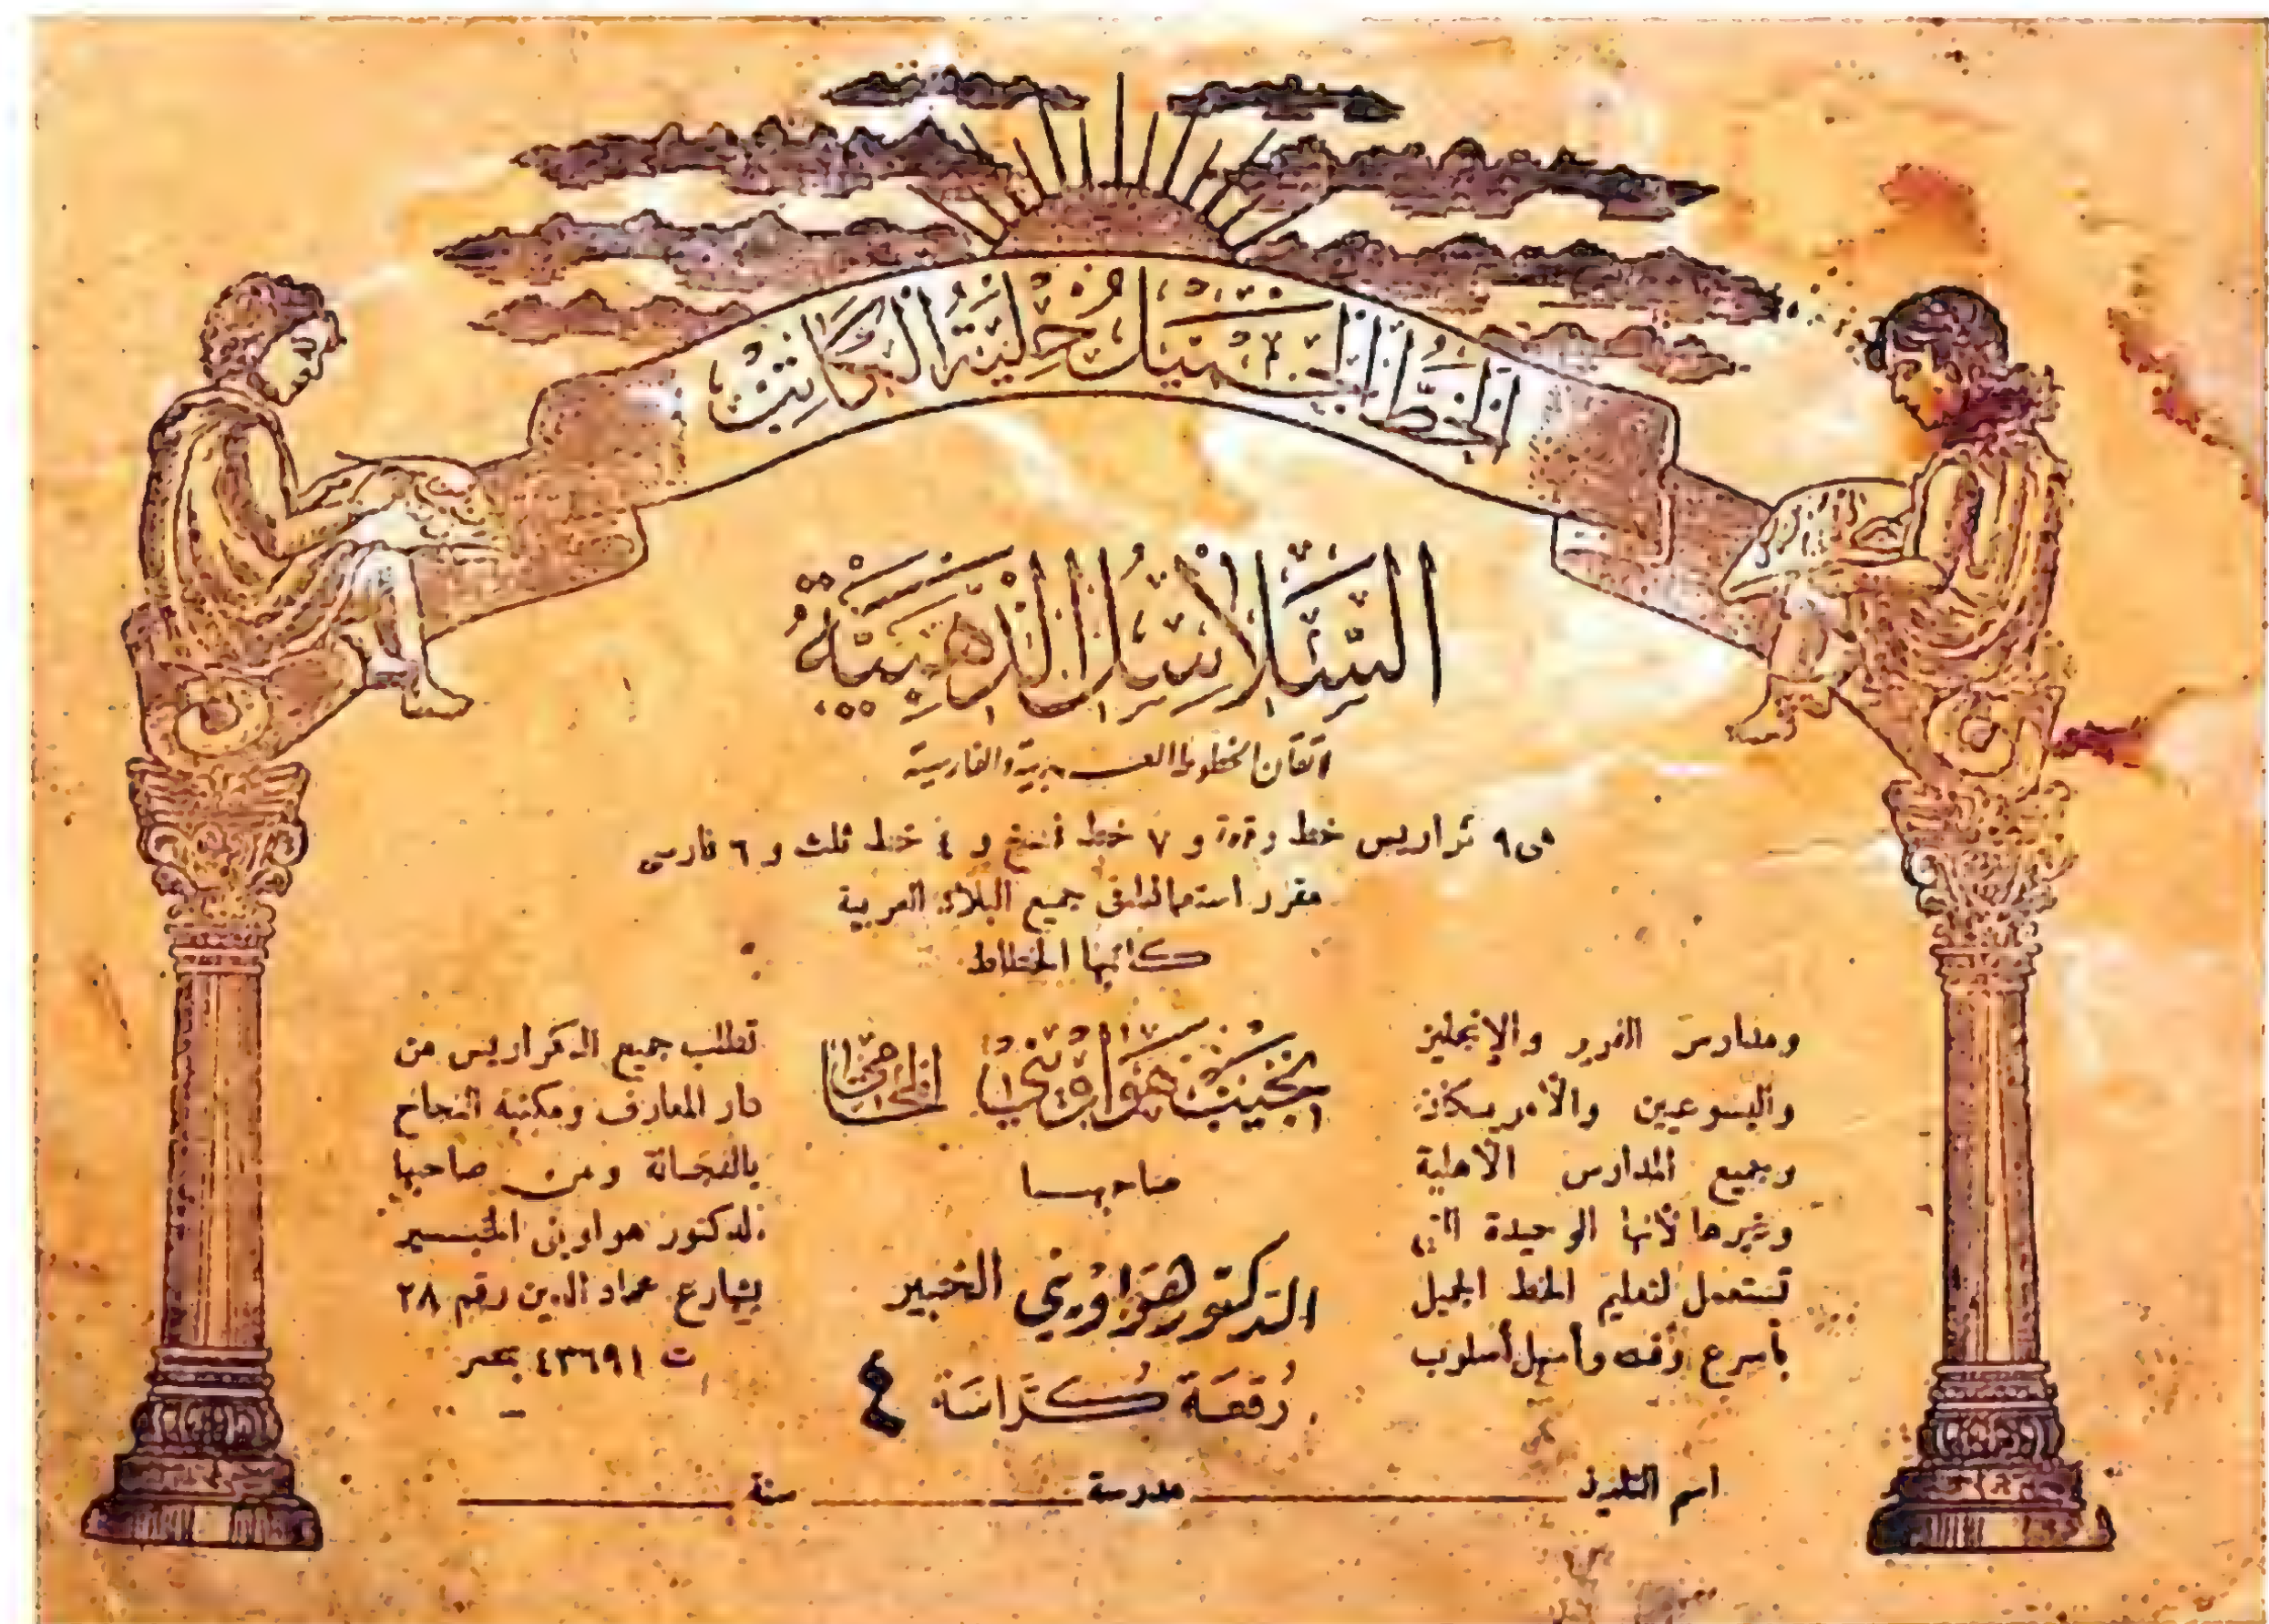 الخَطُّ الجَمِيلُ حُلِيَةُ الكَاتِبِ
السَّلَاسِلُ الذَّهَبِيَّةُ
لاتقان الخطوط العربية والفارسية
٩ كراريس خط رقعة و ٧ خط نسخ و ٤ خط ثلث و ٦ فارسى
مقرر استعمالها فى جميع البلاد العربية
كاتبها الخطاط
نجيب هواويني
صاحبها
الدكتور هواويني الخبير
رقعة كراسة ٤
ومدارس الفرير والإنجليز
واليسوعيين والأمريكان
وجميع المدارس الأهلية
وغيرها لأنها الوحيدة التى
تستعمل لتعليم الخط الجميل
بأسرع وقت وأسهل أسلوب
تطلب جميع الكراريس من
دار المعارف ومكتبة النجاح
بالفجالة ومن صاحبها
الدكتور هواوينى الخبير
بشارع عماد الدين رقم ٢٨
ت ٤٣٦٩١ بمصر
اسم التلميذ مدرسة سنة